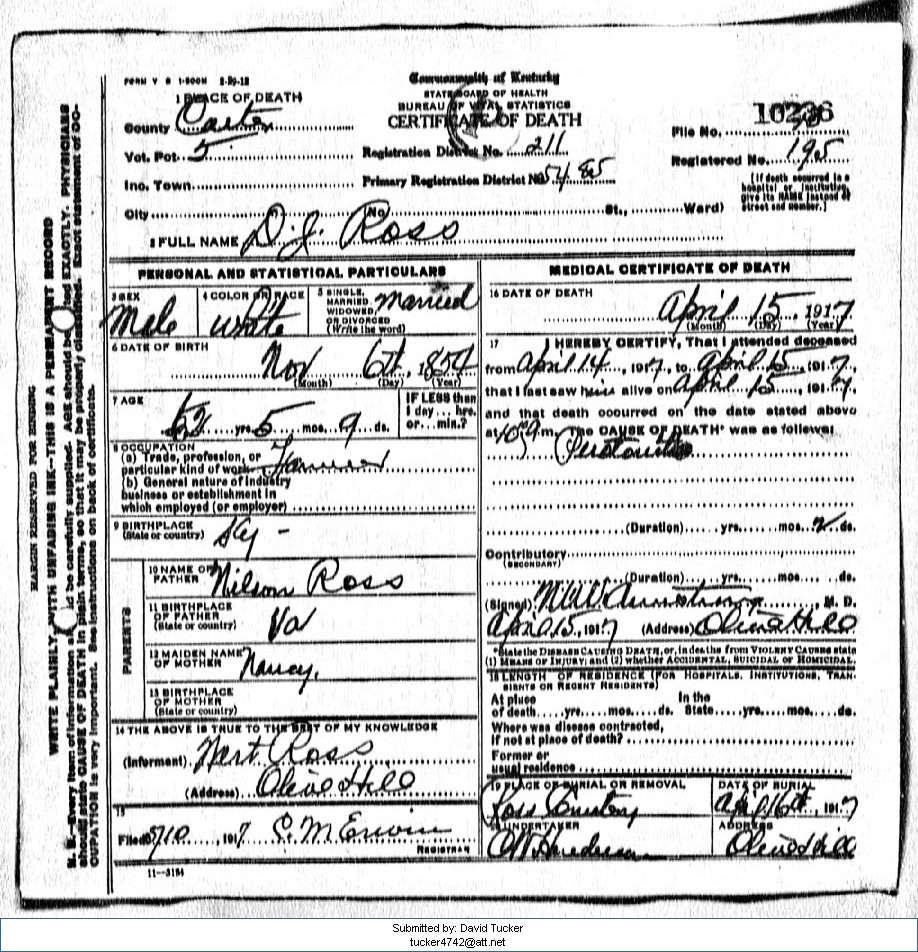 FORM V S 1-500M 2-29-12
Commonwealth of Kentucky
STATE BOARD OF HEALTH
BUREAU OF VITAL STATISTICS
CERTIFICATE OF DEATH
1 PLACE OF DEATH
County Carter
Vot. Pct. 5
Inc. Town
City
Registration District No. 211
Primary Registration District No. 5485
File No. 10236
Registered No. 195
(If death occurred in a
hospital or institution,
give its NAME instead of
street and number.)
(No St., Ward)
2 FULL NAME D. J. Ross
PERSONAL AND STATISTICAL PARTICULARS
3 SEX
Male
4 COLOR OR RACE
White
5 SINGLE,
MARRIED,
WIDOWED,
OR DIVORCED
(Write the word)
Married
6 DATE OF BIRTH
Nov 6th, 1854
(Month) (Day) (Year)
7 AGE
62 yrs. 5 mos. 9 ds.
IF LESS than
1 day... hrs.
or... min.?
8 OCCUPATION
(a) Trade, profession, or
particular kind of work Farmer
(b) General nature of industry
business or establishment in
which employed (or employer)
9 BIRTHPLACE
(State or country) Ky -
PARENTS
10 NAME OF
FATHER Nilson Ross
11 BIRTHPLACE
OF FATHER
(State or country) Va
12 MAIDEN NAME
OF MOTHER Nancy.
13 BIRTHPLACE
OF MOTHER
(State or country)
14 THE ABOVE IS TRUE TO THE BEST OF MY KNOWLEDGE
(Informant) Ross
(Address) Olive Hill
15
Filed 5/10, 1917 Erwin
REGISTRAR
11—3184
MEDICAL CERTIFICATE OF DEATH
16 DATE OF DEATH
April 15 1917
(Month) (Day) (Year)
17 I HEREBY CERTIFY, That I attended deceased
from April 14, 1917, to April 15, 1917,
that I last saw him alive on April 15, 1917,
and that death occurred on the date stated above
at m. The CAUSE OF DEATH* was as follows:
Peritonitis
(Duration) yrs. mos. 2 ds.
Contributory
(SECONDARY)
(Duration) yrs. mos. ds.
(Signed) Armstrong, M. D.
April 15, 1917 (Address) Olive Hill
*State the DISEASE CAUSING DEATH, or, in deaths from VIOLENT CAUSES state
(1) MEANS OF INJURY; and (2) whether ACCIDENTAL, SUICIDAL or HOMICIDAL.
18 LENGTH OF RESIDENCE (FOR HOSPITALS, INSTITUTIONS, TRAN-
SIENTS OR RECENT RESIDENTS)
At place In the
of death yrs. mos. ds. State yrs. mos. ds.
Where was disease contracted,
if not at place of death?
Former or
usual residence
19 PLACE OF BURIAL OR REMOVAL
Ross Cemetery
DATE OF BURIAL
April 16th, 1917
20 UNDERTAKER
Henderson
ADDRESS
Olive Hill
MARGIN RESERVED FOR BINDING
WRITE PLAINLY WITH UNFADING INK—THIS IS A PERMANENT RECORD
N. B. Every item of information should be carefully supplied. AGE should be stated EXACTLY. PHYSICIANS
should state CAUSE OF DEATH in plain terms, so that it may be properly classified. Exact statement of OC-
CUPATION is very important. See instructions on back of certificate.
Submitted by: David Tucker
tucker4742@att.net